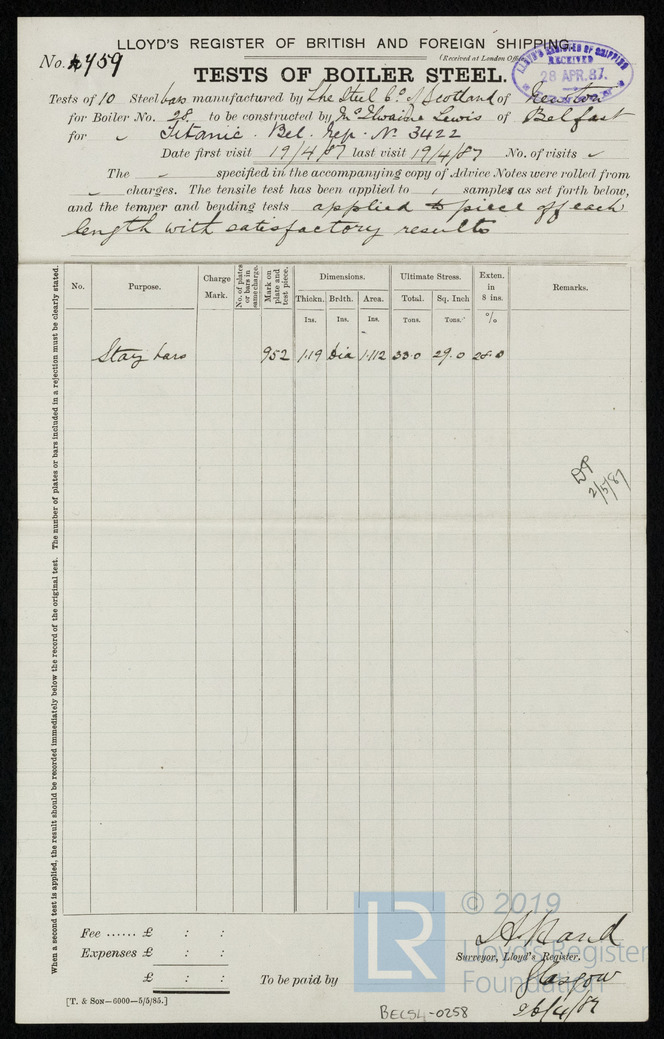 LLOYD'S REGISTER OF BRITISH AND FOREIGN SHIPPING.
No. 4759
(Received at London Office
LLOYD'S REGISTER OF SHIPPING
RECEIVED
28 APR. 87.
TESTS OF BOILER STEEL.
Tests of 10 Steel bars manufactured by The Steel Co. of Scotland of Newton
for Boiler No. 28. to be constructed by McIlwaine Lewis of Belfast
for " Titanic. Bel. Rep. No 3422
Date first visit 19/4/87 last visit 19/4/87 No. of visits
The specified in the accompanying copy of Advice Notes were rolled from
charges. The tensile test has been applied to 1 samples as set forth below,
and the temper and bending tests applied to piece off each
length with satisfactory results
When a second test is applied, the result should be recorded immediately below the record of the original test. The number of plates or bars included in a rejection must be clearly stated.
No. Purpose. Charge Mark. No. of plates or bars in same charge. Mark on plate and test piece. Dimensions. Ultimate Stress. Exten. in 8 ins. Remarks.
Thickn. Brdth. Area. Total. Sq. Inch
Ins. Ins. Ins. Tons. Tons. %
Stay bars 952 1.19 Dia 1.112 33.0 29.0 28.0
2/5/87
Fee ...... £ : :
Expenses £ : :
£ : :
To be paid by
Surveyor, Lloyd's Register.
Glasgow
26/4/87
[T. & SON—6000—5/5/85.]
BECS4-0258
LR
© 2019
Lloyd's Register
Foundation